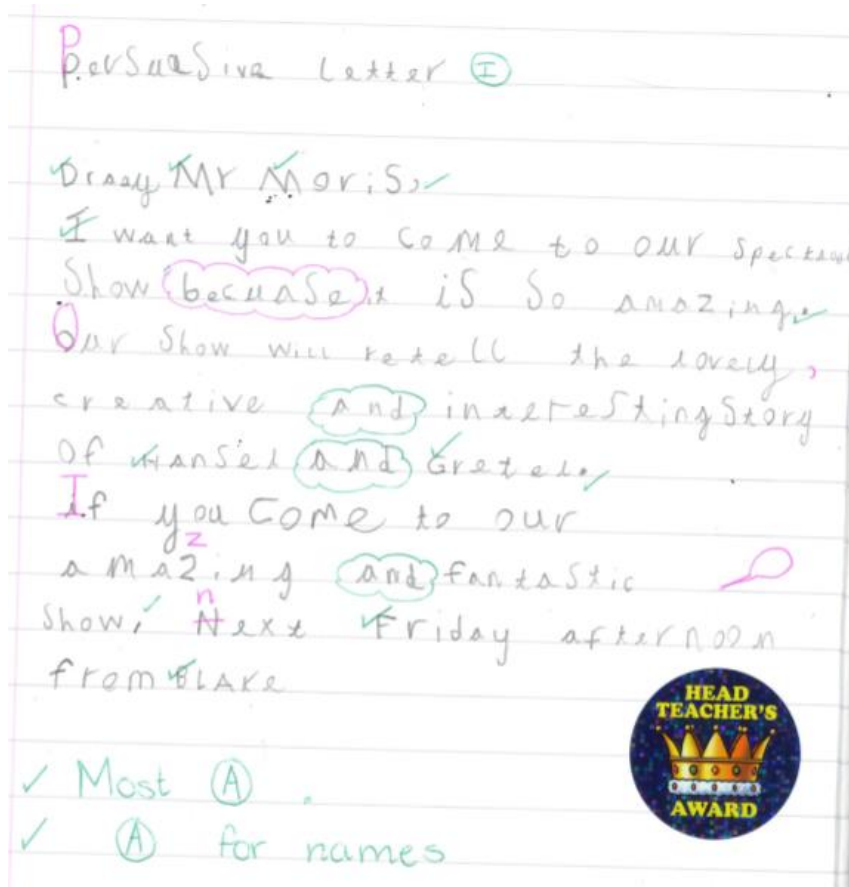 Persuasive Letter I
Draay Mr Moris,
I want you to come to our
Show becuase it iS So amazing.
Our Show will retell the lovely,
creative and interesting Story
Of Hansel and Gretel.
If you Come to our
z
amazing and fantaStic
n
Show, Next Friday afternoon
from BLAKe
HEAD
TEACHER'S
AWARD
✓ Most A .
✓ A for names